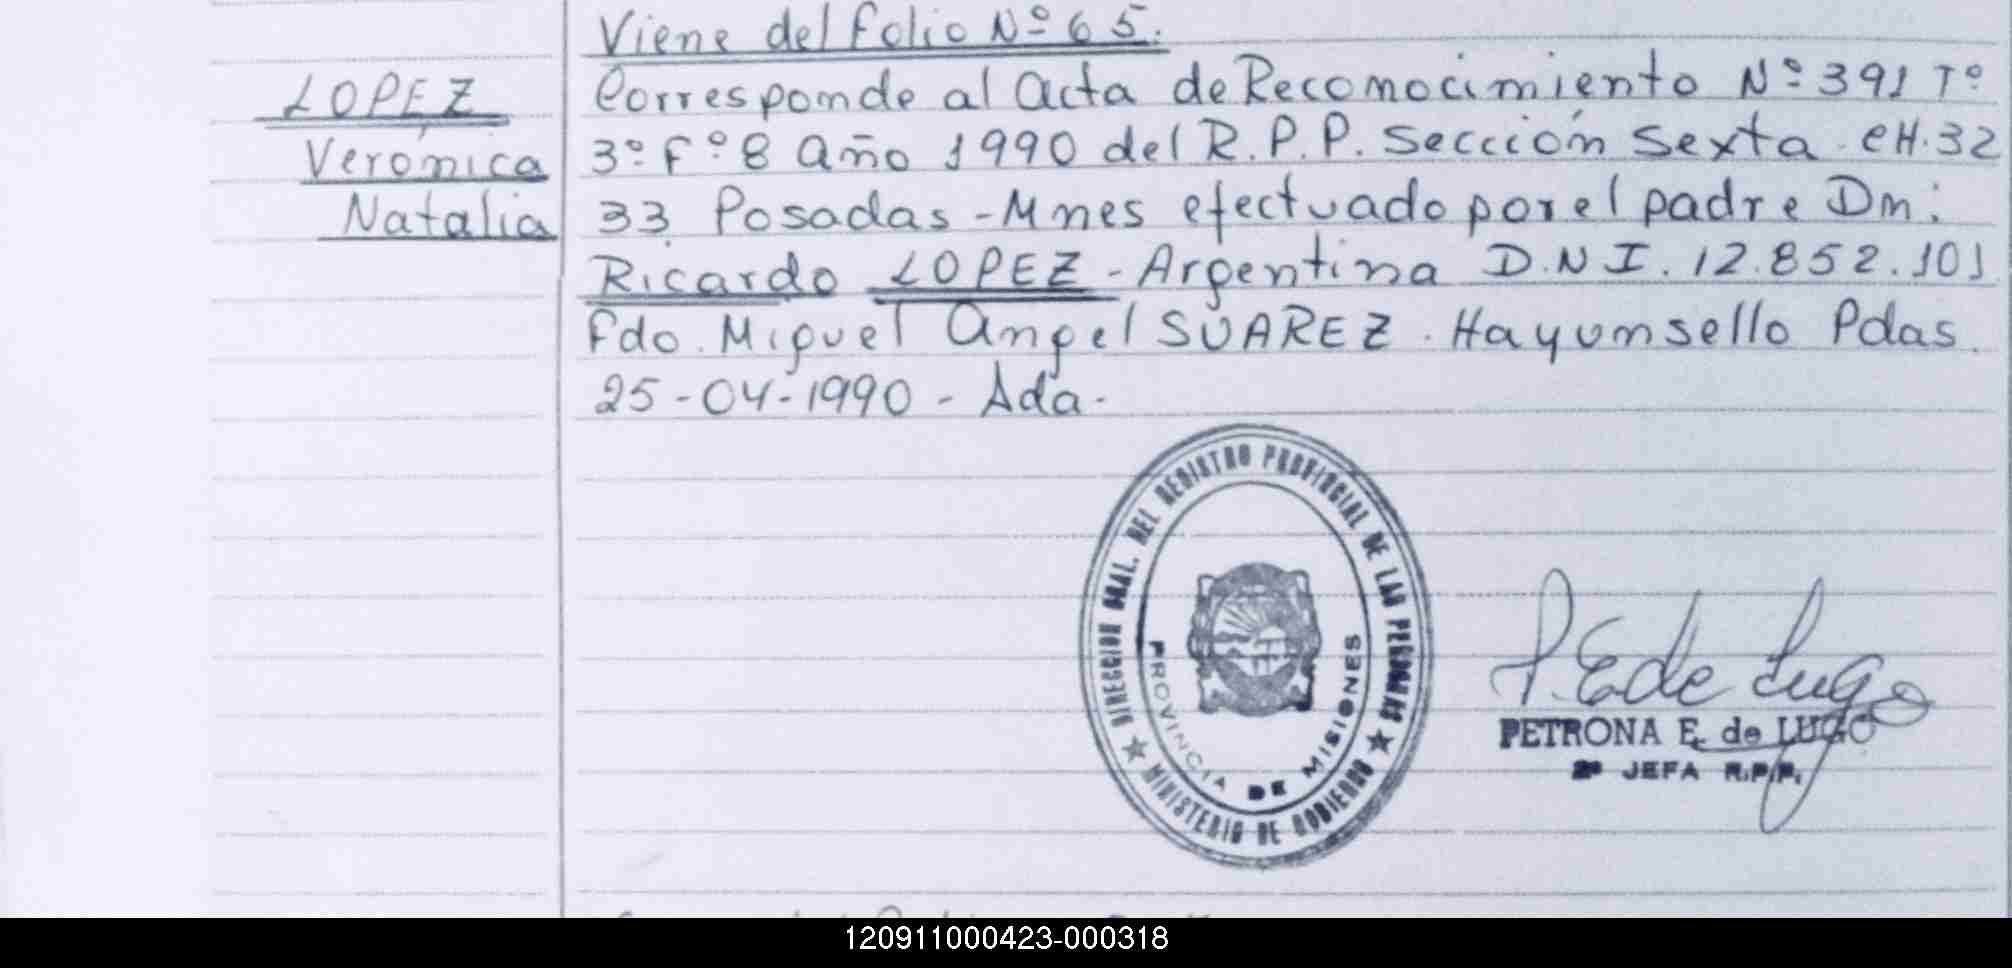 Viene del folio Nº 65.
LOPEZ
Verónica
Natalia
Corresponde al acta de Reconocimiento Nº 391 Tº
3º Fº 8 año 1990 del R.P.P. Sección Sexta. CH. 32
33 Posadas - Mnes efectuado por el padre Dn:
Ricardo LOPEZ - Argentina D.N.I. 12.852.101
Fdo. Miguel Angel SUAREZ. Hay un sello Pdas.
25-04-1990 - Ada.
DIRECCION GRAL. DEL REGISTRO PROVINCIAL DE LAS PERSONAS
★ MINISTERIO DE GOBIERNO ★
PROVINCIA DE MISIONES
P. E de Lugo
PETRONA E. de LUGO
2ª JEFA R.P.P.
120911000423-000318